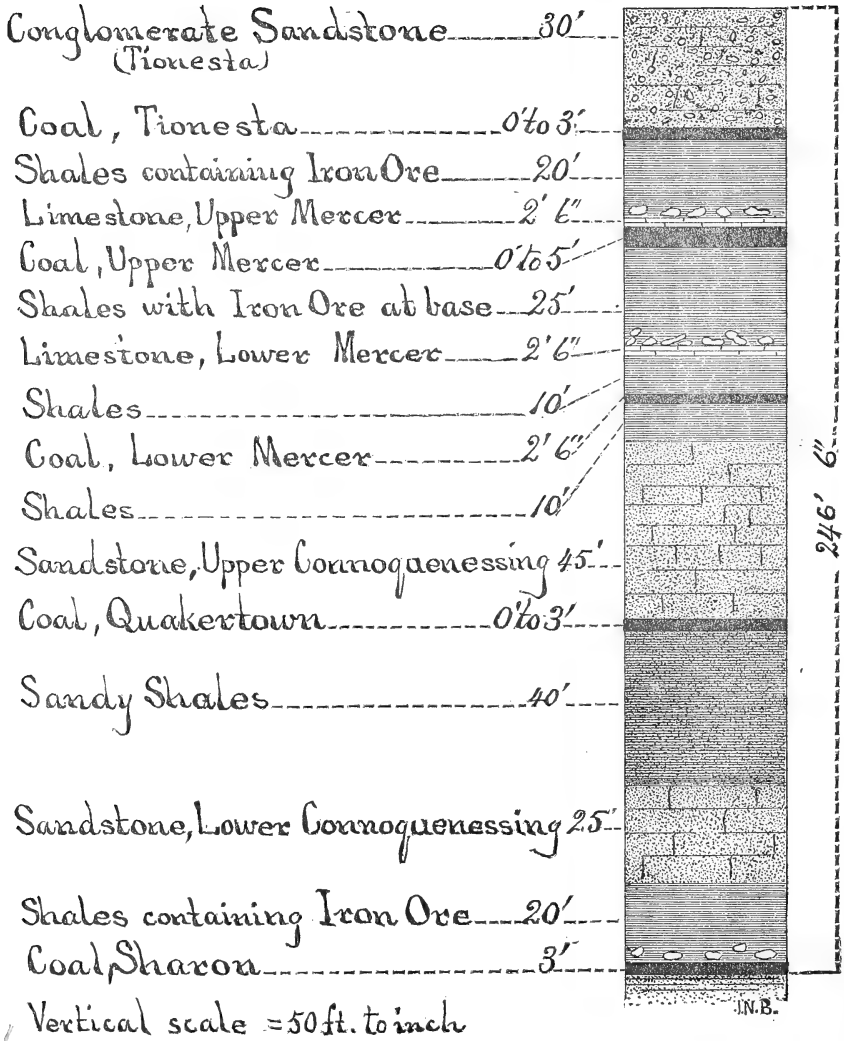 Conglomerate Sandstone 30'
(Tionesta)
Coal, Tionesta 0' to 3'
Shales containing Iron Ore 20'
Limestone, Upper Mercer 2' 6"
Coal, Upper Mercer 0' to 5'
Shales with Iron Ore at base 25'
Limestone, Lower Mercer 2' 6"
Shales 10'
Coal, Lower Mercer 2' 6"
Shales 10'
Sandstone, Upper Connoquenessing 45'
Coal, Quakertown 0' to 3'
Sandy Shales 40'
Sandstone, Lower Connoquenessing 25'
Shales containing Iron Ore 20'
Coal, Sharon 3'
246' 6"
I.N.B.
Vertical scale = 50 ft. to inch